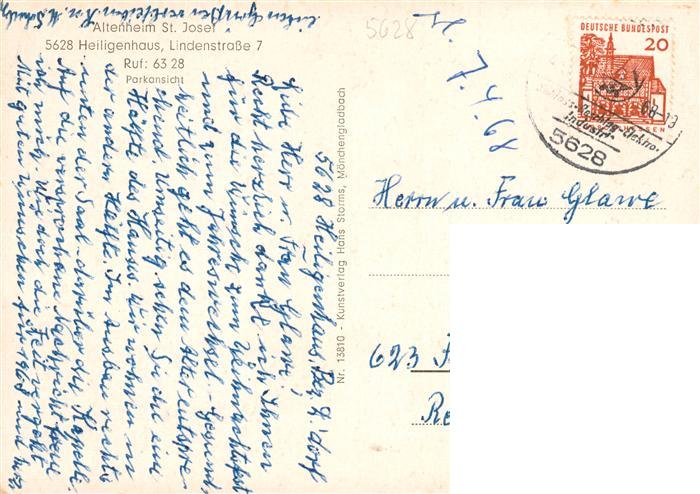 Altenheim St. Josef
5628 Heiligenhaus, Lindenstraße 7
Ruf: 63 28
Parkansicht
Nr. 13810 - Kunstverlag Hans Storms, Mönchengladbach
5628
7.4.68
DEUTSCHE BUNDESPOST
20
HESSEN
68-13
Industrie
5628
Herrn u. Frau Glawe
623
5628 Heiligenhaus Bez. D'dorf
Liebe Herr u. Frau Glawe,
Recht herzlich danke ich Ihnen
für die Wünsche zum Weihnachtsfest
und zum Jahreswechsel. Gesund-
heitlich geht es dem Alter entspre-
chend. Umseitig sehen Sie die eine
Hälfte des Hauses. Wir wohnen in
der andern Hälfte. Im Ausbau rechts
unten der Saal darüber die Kapelle.
Auf die versprochene Nachricht freue
ich mich. Wie doch die Zeit vergeht
Mit guten Wünschen für 1968 und
lieben Grüßen